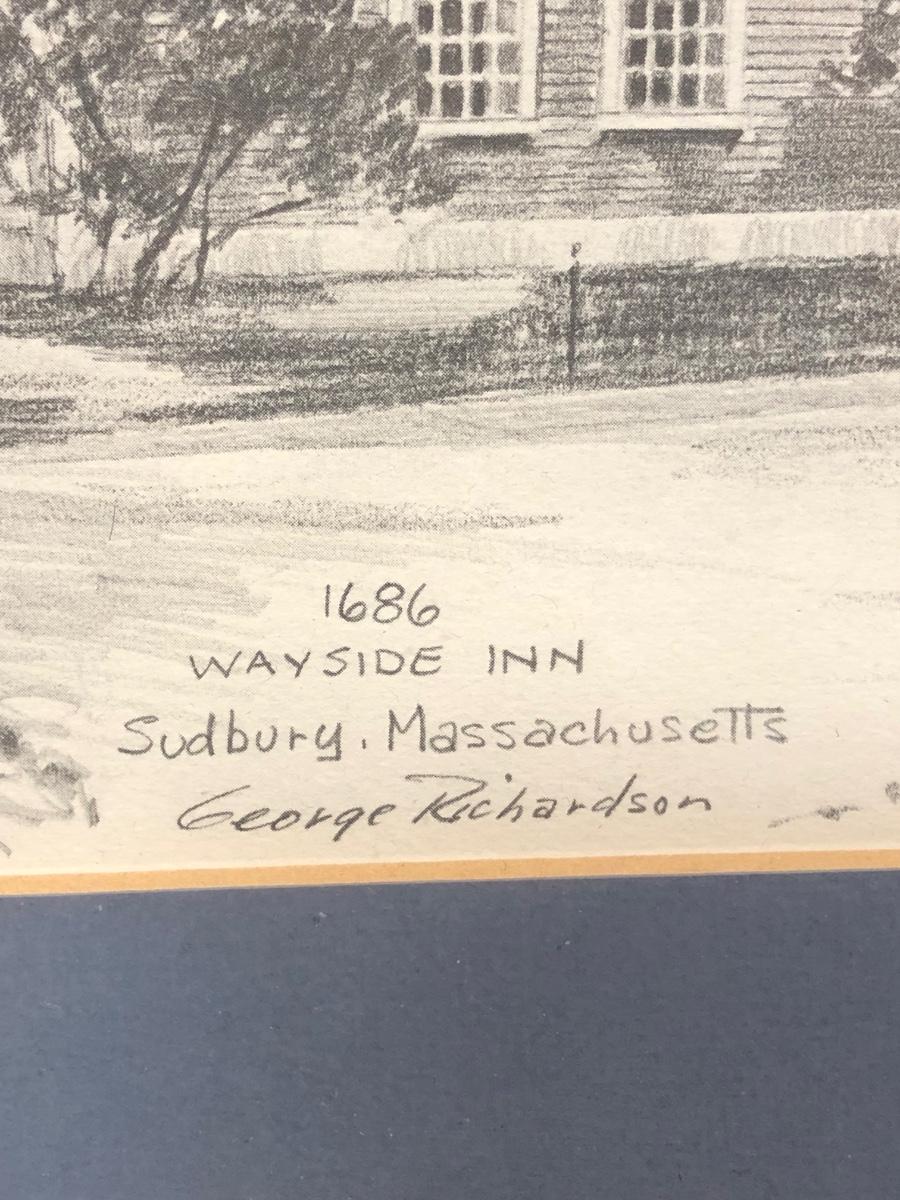 1686
WAYSIDE INN
Sudbury, Massachusetts
George Richardson